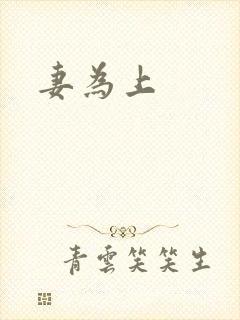 妻為上
青雲笑笑生